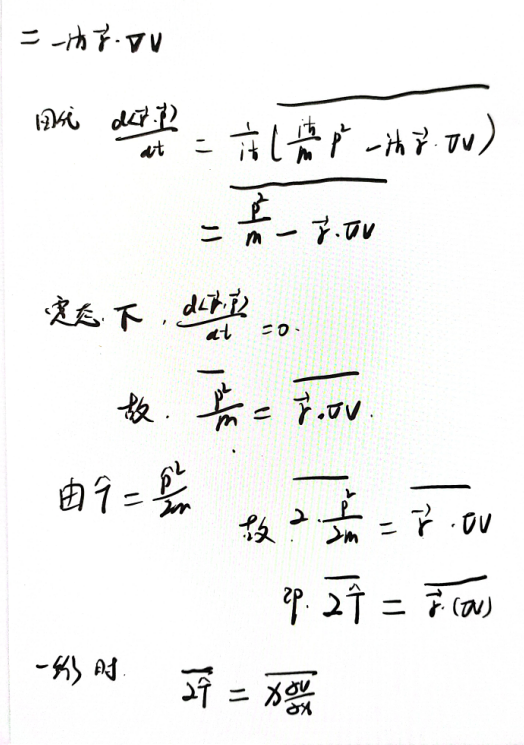 = -iħ r⃗·∇V
因此 d⟨r⃗·p⃗⟩/dt = 1/iħ (iħ/m p² - iħ r⃗·∇V)
= p²/m - r⃗·∇V
定态下, d⟨r⃗·p⃗⟩/dt = 0.
故. p²/m = r⃗·∇V.
由 T̂ = p̂²/2m 故 2·p²/2m = r⃗·∇V
即. 2T̂ = r⃗·(∇V)
一维时. 2T̂ = x ∂V/∂x